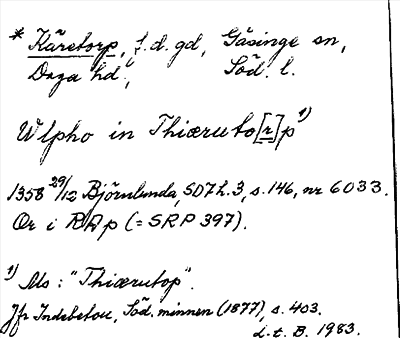 * Käretorp, f.d. gd, Gåsinge sn,
Daga hd, Söd. l.
Wlpho in Thiæruto[r]p¹⁾
1358 29/12 Björnlunda, SD 7 h. 3, s. 146, nr 6033.
Or i RAp (= SRP 397).
¹⁾ Ms: "Thiærutop".
Jfr Indebetou, Söd. minnen (1877), s. 403.
L.t. B. 1983.